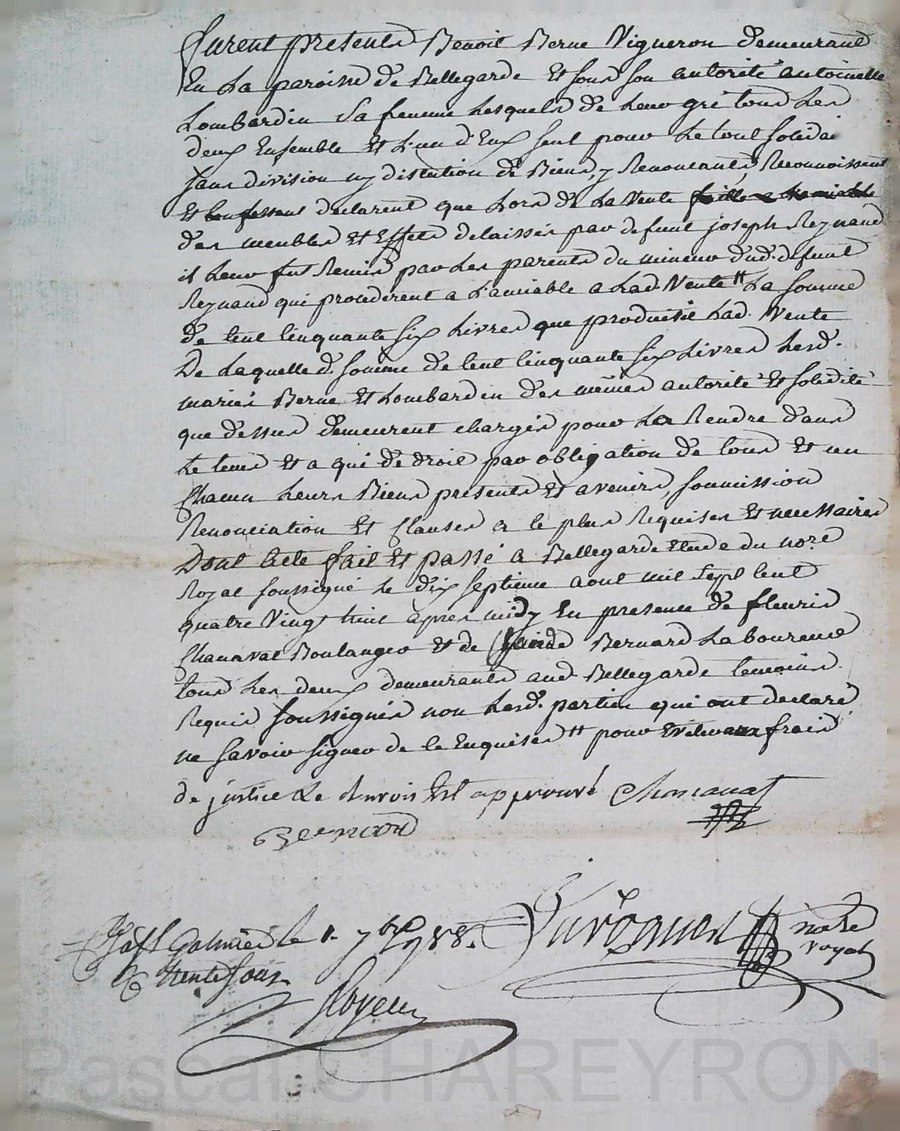 furent présents Benoit Berne Vigneron demeurant
En La paroisse de Bellegarde Et sous son autorité antoinette
Lombardin Sa femme Lesquels de Leur gré tous Les
deux Ensemble Et L'un d'Eux seul pour Le tout solidai
sans division ny distution de Biens, y Renoncants, Reconnoissent
Et Confessent declarent que Lors de La Vente
des meubles Et Effets delaissés par defunt joseph Reynaud
il Leur fut Remis par Les parents du mineur dud. defunt
Reynaud qui procederent a L'amiable a Lad. Vente La somme
de Cent Cinquante six Livres que produisit Lad. Vente
De Laquelle d. somme de Cent Cinquante six Livres Lesd.
mariés Berne Et Lombardin des mêmes autorité Et solidité
que dessus demeurent chargés pour La Rendre dans
Le tems Et a qui de droit par obligation de tous Et un
Chacun Leurs Biens présents Et avenirs, soumission
Renonciation Et Clauses a ce plus Requises Et necessaires
Dont Acte fait Et passé a Bellegarde Etude du nore
Royal soussigné Le dix septieme aout mil sept Cent
quatre Vingt huit apres midy En présence de fleuris
Chanavat Boulanger Et de Bernard Laboureur
tous Les deux demeurants aud. Bellegarde temoins
Requis soussignés non Lesd. parties qui ont déclaré
ne savoir signer de ce Enquises pour frais
de justice Le Est approuvé Chanavat
Bernard
notre
royal
a St Galmier le 1. 7bre 1788.